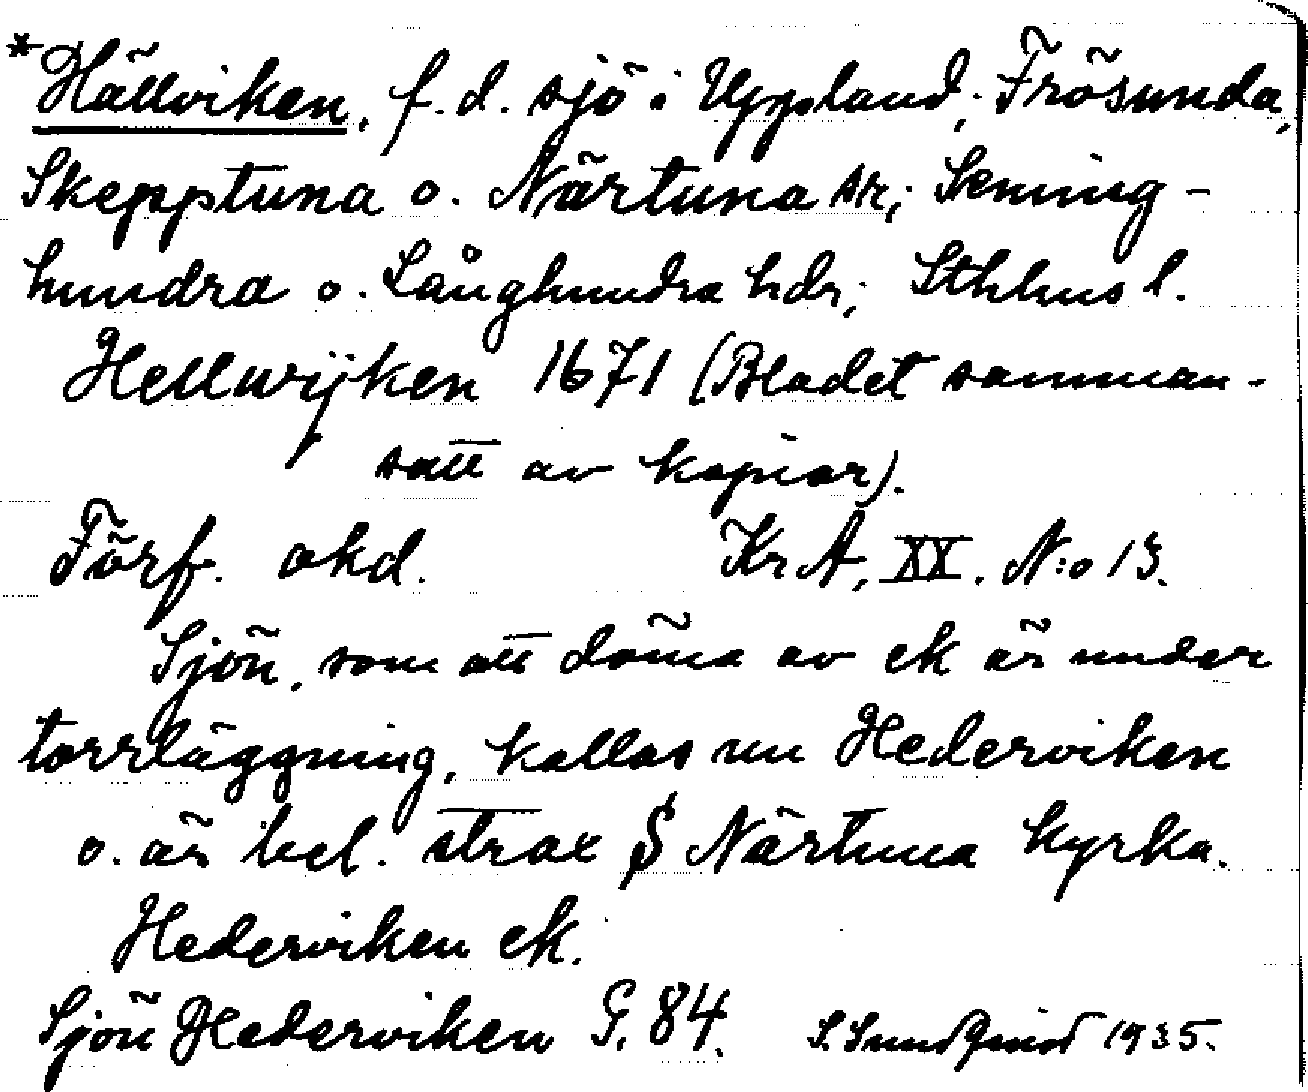 *Hällviken, f. d. sjö i Uppland; Frösunda,
Skepptuna o. Närtuna snr; Seming-
hundra o. Långhundra hdr; Sthlms l.
Hellwijken 1671 (Bladet samman-
satt av kopior).
Förf. okd. KrA, XX. N:o 13.
Sjön, som att döma av ek är under
torrläggning, kallas nu Hederviken
o. är bel. strax S Närtuna kyrka.
Hederviken ek.
Sjön Hederviken G. 84. S. Sundqvist 1935.